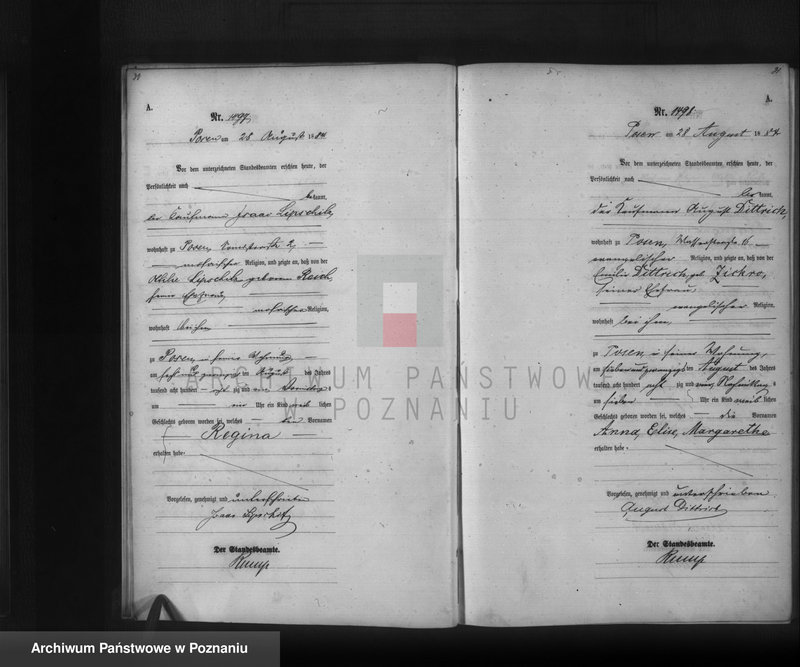 A.
Nr. 1497
Posen am 28 August 1884
Vor dem unterzeichneten Standesbeamten erschien heute, der
Persönlichkeit nach
bekannt,
der Kaufmann Isaac Lipschitz,
wohnhaft zu Posen, 2,
mosaischer Religion, und zeigte an, daß von der
Lipschitz geborene
seiner Ehefrau,
mosaischer Religion,
wohnhaft bei ihm,
zu Posen in seiner Wohnung,
am August des Jahres
tausend acht hundert achtzig und vier
um Uhr ein Kind weiblichen
Geschlechts geboren worden sei, welches den Vornamen
Regina
erhalten habe.
Vorgelesen, genehmigt und unterschrieben
Isaac Lipschitz
Der Standesbeamte.
Kump
31
A.
Nr. 1498
Posen am 28 August 1884
Vor dem unterzeichneten Standesbeamten erschien heute, der
Persönlichkeit nach
bekannt,
der Kaufmann August Dittrich,
wohnhaft zu Posen, Wasserstraße 16
evangelischer Religion, und zeigte an, daß von der
Emilie Dittrich geb.
seiner Ehefrau
evangelischer Religion,
wohnhaft bei ihm,
zu Posen in seiner Wohnung,
am siebenundzwanzigsten August des Jahres
tausend acht hundert achtzig und vier, Nachmittags
um sieben Uhr ein Kind weiblichen
Geschlechts geboren worden sei, welches die Vornamen
Anna, Elise, Margarethe
erhalten habe.
Vorgelesen, genehmigt und unterschrieben
August Dittrich
Der Standesbeamte.
Kump
ARCHIWUM PAŃSTWOWE
W POZNANIU
Archiwum Państwowe w Poznaniu